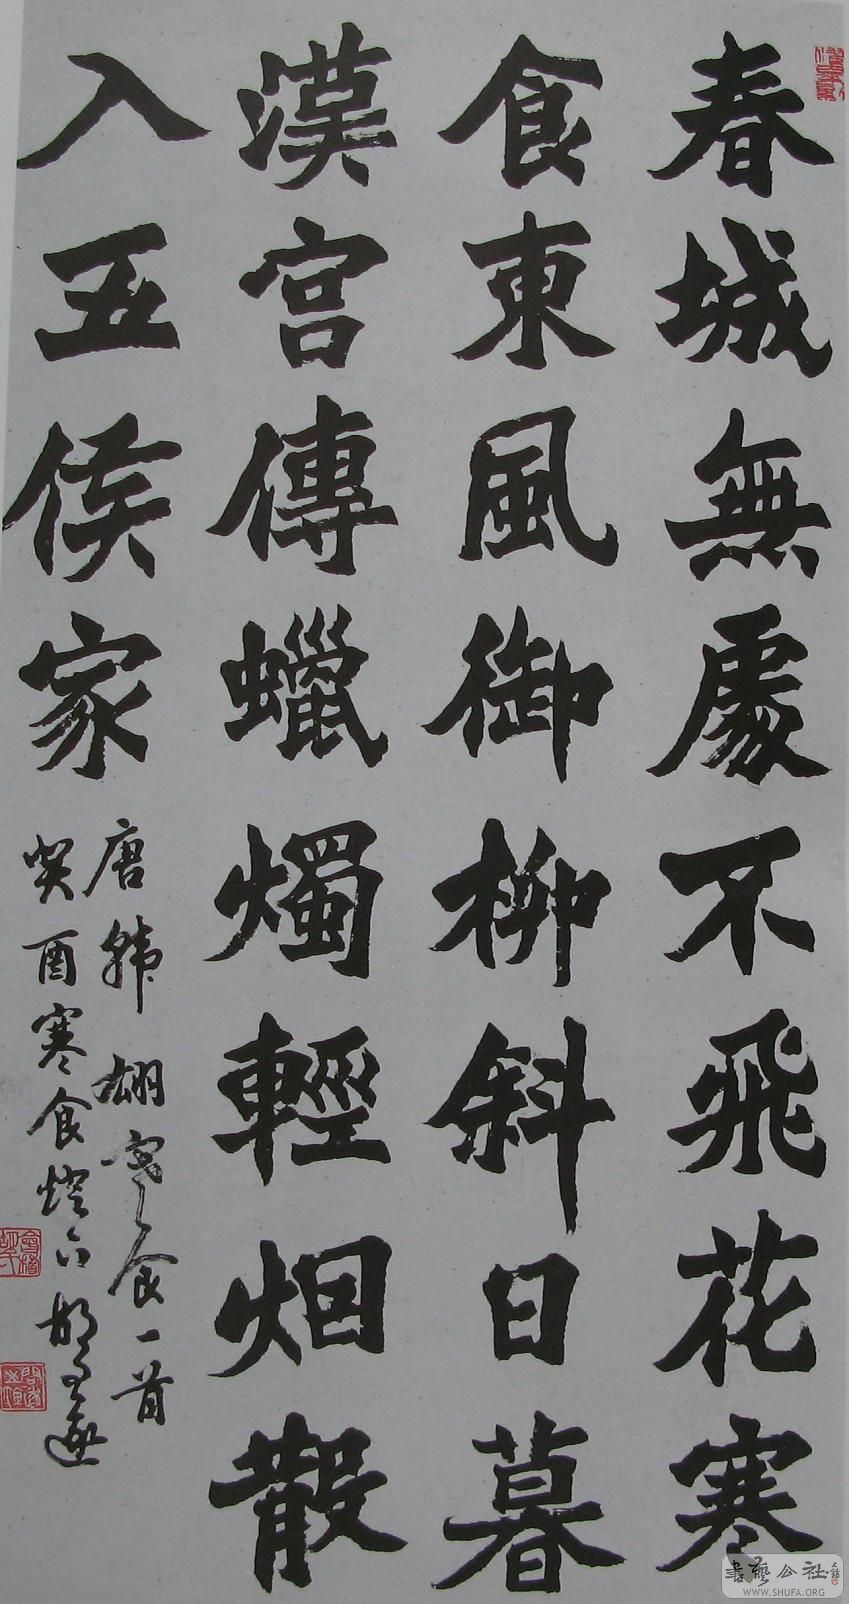 春城無處不飛花寒
食東風御柳斜日暮
漢宮傳蠟燭輕烟散
入五侯家
唐韩翃寒食一首
癸酉寒食燈下胡問遂
書藝公社
WWW.SHUFA.ORG